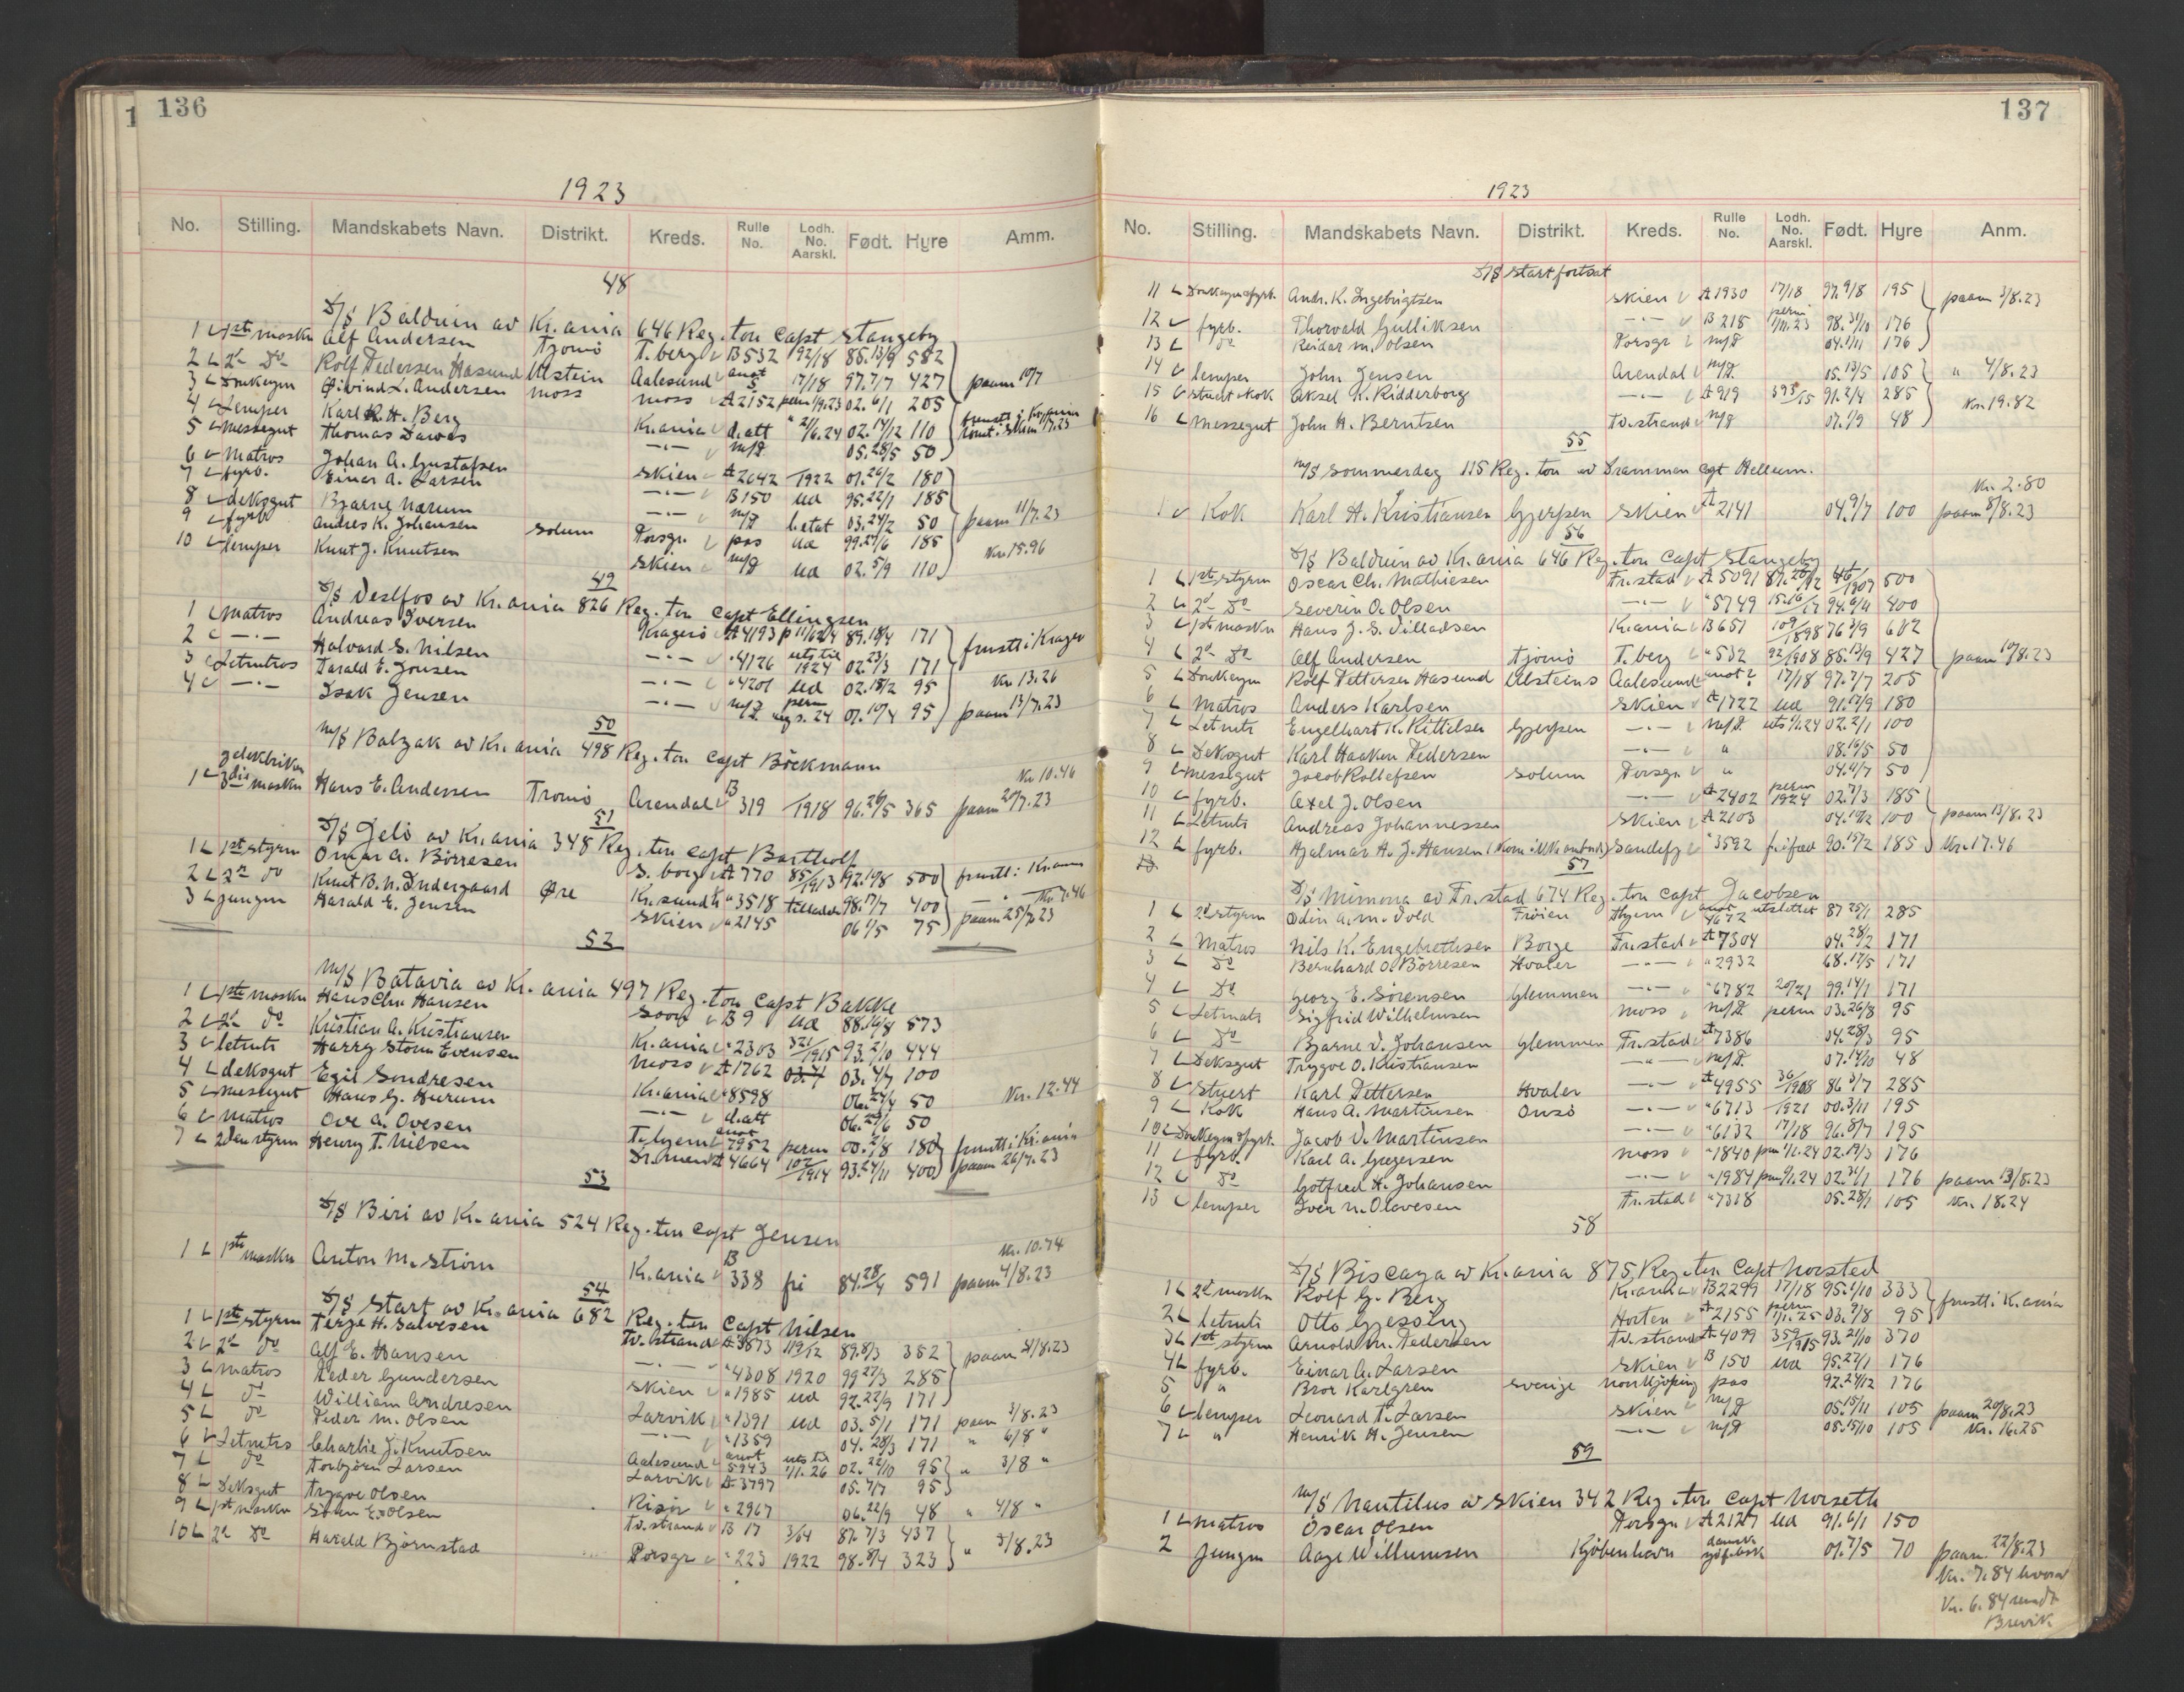 136
1923
No. Stilling. Mandskabets Navn. Distrikt. Kreds. Rulle No. Lodh. No. Aarskl. Født. Hyre Amm.
48
D/S Balduin av Kr.ania 646 Reg. ton Capt Stangeby
1 1ste maskn Alf Andersen Tjømø T.berg B 532 92/18 85.13/9 582
2 2d Do Rolf Pedersen Hasund Ulstein Aalesund anot 5 17/18 97.7/7 427 paam 10/7
3 Donkeym Øivind L. Andersen Moss Moss A 2152 perm 1/9.23 02.6/1 205
4 Lemper Karl H. Berg Kr.ania d.att " 2/6.24 02.14/12 110
5 Messegut Thomas Dawes —"— m/d 05.28/5 50
6 Matros Johan A. Gustafsen Skien A 2642 1922 01.26/2 180
7 fyrb. Einar A. Larsen —"— B 150 ud 95.22/1 185
8 deksgut Bjarne Nærum —"— m/d betat 03.24/2 50 paam 11/7.23
9 fyrb. Andres K. Johansen Solum Porsgr. pas ud 99.27/6 185
10 lemper Knut J. Knutsen Skien m/d ud 02.5/9 110 Kr. 15.96
49
D/S Vestfos av Kr.ania 826 Reg. ton Capt Ellingsen
1 Matros Andreas Iversen Kragerö A 4193 89.18/4 171
2 —"— Halvard S. Nilsen —"— " 4126 uts til 1924 02.23/3 171 frustt i Kragerø
3 Letmtros Tarald E. Jonsen —"— " 4201 ud 02.18/2 95 Kr 13.26
4 —"— Isak Jensen —"— m/d perm aug s. 24 01.10/4 95 paam 13/7.23
50
M/S Balzak av Kr.ania 498 Reg. ton Capt Böckmann
1 3die maskn Hans E. Andersen Tromö Arendal B 319 1918 96.26/5 365 paam 20/7.23
Kr 10.46
51
D/S Jelö av Kr.ania 348 Reg. ton Capt Bartholf
1 1ste styrm Omar A. Börresen S. borg A 770 85/1913 92.10/8 500 frustt i Kr.ania
2 2n do Knut B. N. Indergaard Øre Kr.sund " 3518 98.17/7 400 Kr 7.46
3 jungm Harald E. Jensen Skien " 2145 06 1/5 75 paam 25/7.23
52
M/S Batavia av Kr.ania 497 Reg. ton Capt Bakke
1 1ste maskn Hans Chr Hansen Soon B 9 ud 88.16/8 573
2 2d do Kristian A. Kristiansen Kr.ania " 2303 321/1915 93.2/10 444
3 letmts Harry Storm Evensen Moss A 1762 03.4/7 100
4 deksgut Egil Sondresen Kr.ania " 8598 06.24/4 50 Kr. 12.44
5 Messegut Hans G. Hurum —"— d.att 06.29/6 50
6 Matros Ove A. Ovesen anot 7952 perm 00.2/8 180 frustt i Kr.ania
7 2den styrm Henry T. Nilsen Dr.men A 4664 102/1914 93.24/11 400 paam 26/7.23
53
D/S Biri av Kr.ania 524 Reg. ton Capt Jensen
1 1ste maskn Anton M. Ström Kr.ania B 338 fri 84.28/4 591 paam 4/8.23
Kr. 10.74
54
D/S Start av Kr.ania 682 Reg. ton Capt Nilsen
1 1ste styrm Terje H. Salvesen Tv.strand A 3873 119/12 89.8/3 352
2 2d do Alf E. Hansen —"— " 4308 1920 99 27/3 285 paam 31/8.23
3 Matros Peder Gundersen Skien " 1985 ud 92.22/9 171
4 do William Andresen Larvik " 1391 ud 03.5/1 171 paam 3/8.23
5 do Peder M. Olsen —"— " 1359 04.28/3 171 " 6/8 "
6 Letmtrs Charlie J. Knutsen Aalesund anot 5943 uts til 1/1.26 02.22/10 95 " 3/8 "
7 do Torbjörn Larsen Larvik A 3797 05.7/7 95
8 Deksgut Trygve Olsen Risör " 2967 06.22/9 48 " 4/8 "
9 1st maskn Olsen Tv.strand B 17 3/04 87.7/3 437
10 2d Do Harald Björnstad Porsgr " 223 1922 98.8/4 323 " 3/8.23
137
1923
No. Stilling. Mandskabets Navn. Distrikt. Kreds. Rulle No. Lodh. No. Aarskl. Født. Hyre Anm.
D/S Start fortsat
11 Donkeym & fyrb. Andr. K. Ingebrigtsen Skien A 1930 17/18 97.9/8 195 paam 3/8.23
12 fyrb. Thorvald Gulliksen —"— B 218 perm 1/11.23 98.31/10 176
13 Do Reidar M. Olsen Porsgr m/d 04.1/11 176
14 lemper John Jensen Arendal m/d 05.13/5 105 " 4/8.23
15 stuert & kok Eksel K. Ridderborg —"— A 919 393/15 91.2/4 285 Kr. 19.82
16 Messegut John H. Berntsen Tv.strand m/d 07.1/9 48
55
M/S Sommerdag 115 Reg. ton av Drammen cpt Hellum.
Kr. 2.80
1 Kok Karl H. Kristiansen Gjerpen Skien A 2141 04.9/7 100 paam 8/8.23
56
D/S Balduin av Kr.ania 646 Reg. ton Capt Stangeby
1 1ste styrm Oscar Ch. Mathiesen Fr.stad A 5091 87.20/12 46/1909 500
2 2d Do Severin O. Olsen —"— " 5749 94.6/4 400
3 1ste maskn Hans J. S. Villadsen Kr.ania B 651 109/1898 76 3/9 682
4 2d Do Alf Andersen Tjömö T.berg " 532 92/1908 85.13/9 427 paam 10/8.23
5 Donkeym Rolf Pettersen Hasund Ulsteins Aalesund anot 2 17/18 97.7/7 205
6 Matros Anders Karlsen Skien A 1722 ud 91.17/9 180
7 Letmts Engelhart K. Kittilsen Gjerpen —"— m/d uts 1/1.24 02.2/1 100
8 Deksgut Karl Haakon Pedersen —"— " 08.16/5 50
9 Messegut Jacob Rollefsen Solum Porsgr " 04.4/7 50
10 fyrb. Axel J. Olsen —"— A 2402 perm 1924 02.7/3 185
11 Letmts Andreas Johannessen Skien A 2103 04.19/2 100 paam 13/8.23
12 fyrb. Hjalmar A. J. Hansen Sandefj " 3592 90.15/2 185 Kr. 17.46
13
57
D/S Mimona av Fr.stad 674 Reg. ton Capt Jacobsen
1 2d styrm Odin A. M. Vold Fröien Thjem anot 4672 utslettet 87 25/1 285
2 Matros Nils K. Engebrethsen Borge Fr.stad A 7304 04.28/2 171
3 Do Bernhard O. Börresen Hvaler —"— " 2932 68.17/5 171
4 Do Georg E. Sörensen Glemmen —"— " 6782 20/21 99.14/1 171
5 Letmats Sigfrid Wilhelmsen Moss m/d perm 03.26/8 95
6 Do Bjarne V. Johansen Glemmen Fr.stad A 7386 04.28/3 95
7 Deksgut Trygve O. Kristiansen —"— m/d 07.14/10 48
8 Stuert Karl Pettersen Hvaler —"— A 4955 36/1908 86 3/7 285
9 Kok Hans A. Martinsen Onsö —"— " 6713 1921 00.3/11 195
10 Donkeym & fyrb. Jacob V. Martinsen —"— " 6132 17/18 96.8/7 195
11 fyrb. Karl A. Gregersen Moss " 1840 perm 1/1.24 02.19/3 176
12 Do Gotfred H. Johansen —"— " 1984 perm 1/1.24 02.31/1 176 paam 13/8.23
13 lemper Iver N. Olavesen Fr.stad " 7318 05.28/1 105 Kr. 18.24
58
D/S Biscaya av Kr.ania 875 Reg. ton Capt Norsted
1 2d maskn Rolf G. Berg Kr.ania B 2299 17/18 95.1/10 333 frustt i Kr.ania
2 letmts Otto Gjessing Horten A 2155 perm 1/1.25 03.9/8 95
3 1st styrm Arnold M. Pedersen Tv.strand A 4099 359/1915 93.21/10 370
4 fyrb. Einar A. Larsen Skien B 150 ud 95.22/1 176
5 " Bror Karlgren Sverige Norrkjøping pas 92.24/12 176
6 lemper Leonard T. Larsen Skien m/d 05.15/11 105 paam 20/8.23
7 " Henrik H. Jensen —"— m/d 08.15/10 105 Kr. 16.25
59
M/S Nautilus av Skien 342 Reg. ton Capt Norseth
1 Matros Oscar Olsen Porsgr A 2127 ud 91.6/1 150
2 Jungm Aage Willumsen Kjöbenhavn dansk sjöf.bok 07.7/5 70 paam. 22/8.23
Kr. 7.84 hvorav
Kr. 6.84 sendt
Brevik